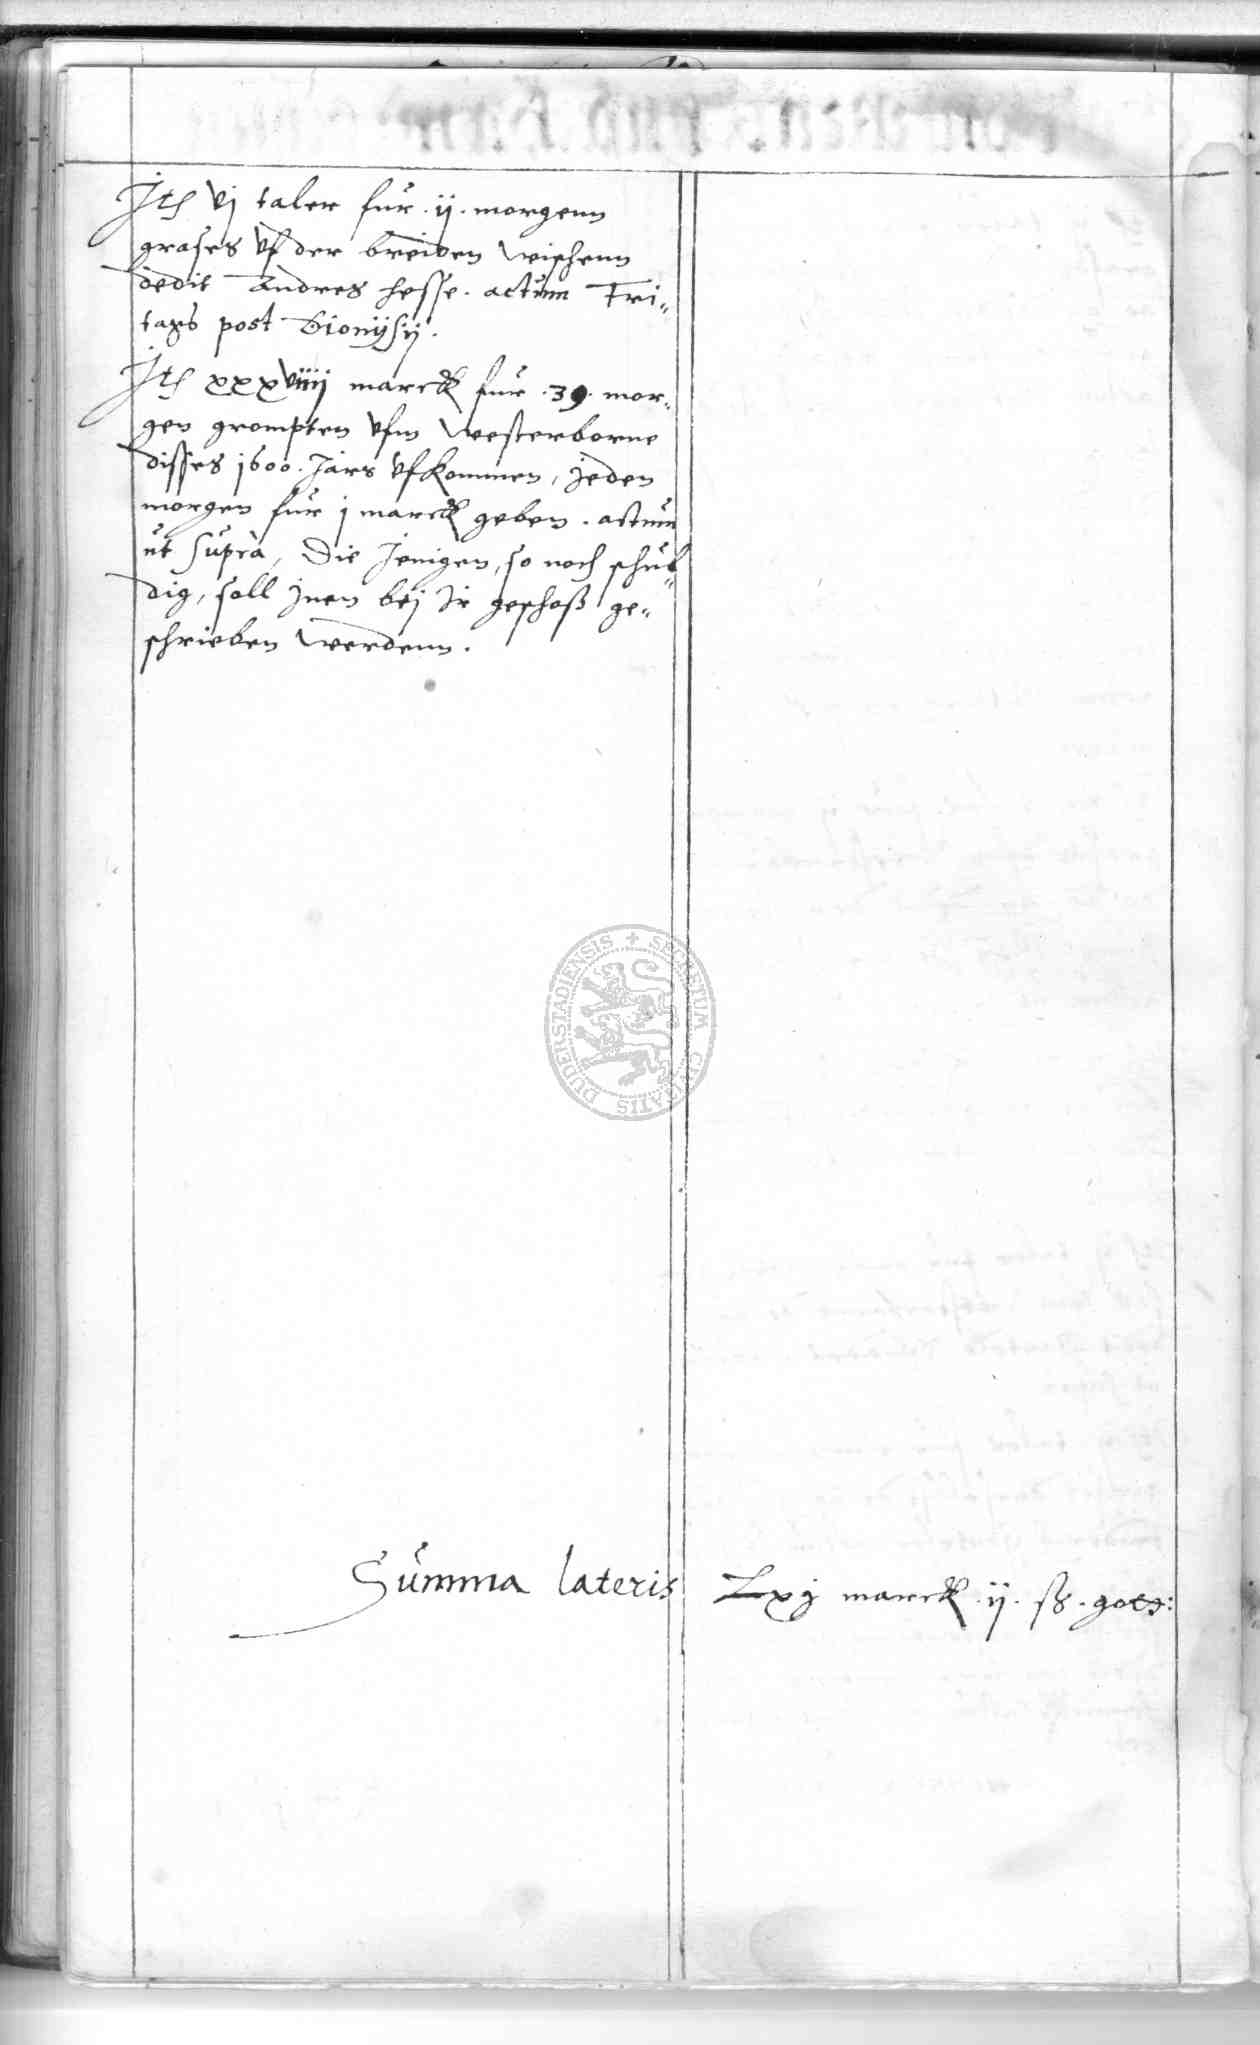 Jtem vj taler fur .ij. morgenn
grases vf der breiden wischenn
dedit Andres Hesse. actum Fri-
tags post Dionijsij.
Jtem xxxviiij marck fur .39. mor-
gen grompten vfm Westerborne
disses 1600. Jars vfkommen, jeden
morgen fur j marck geben. actum
ut supra, Die Jenigen, so noch schul-
dig, soll jnen bej Jr geschoß ge-
schrieben werdenn.
DUDERSTADIENSIS + SECRETUM CIVITATIS
Summa lateris Lxj marck .ij. ß. gots: